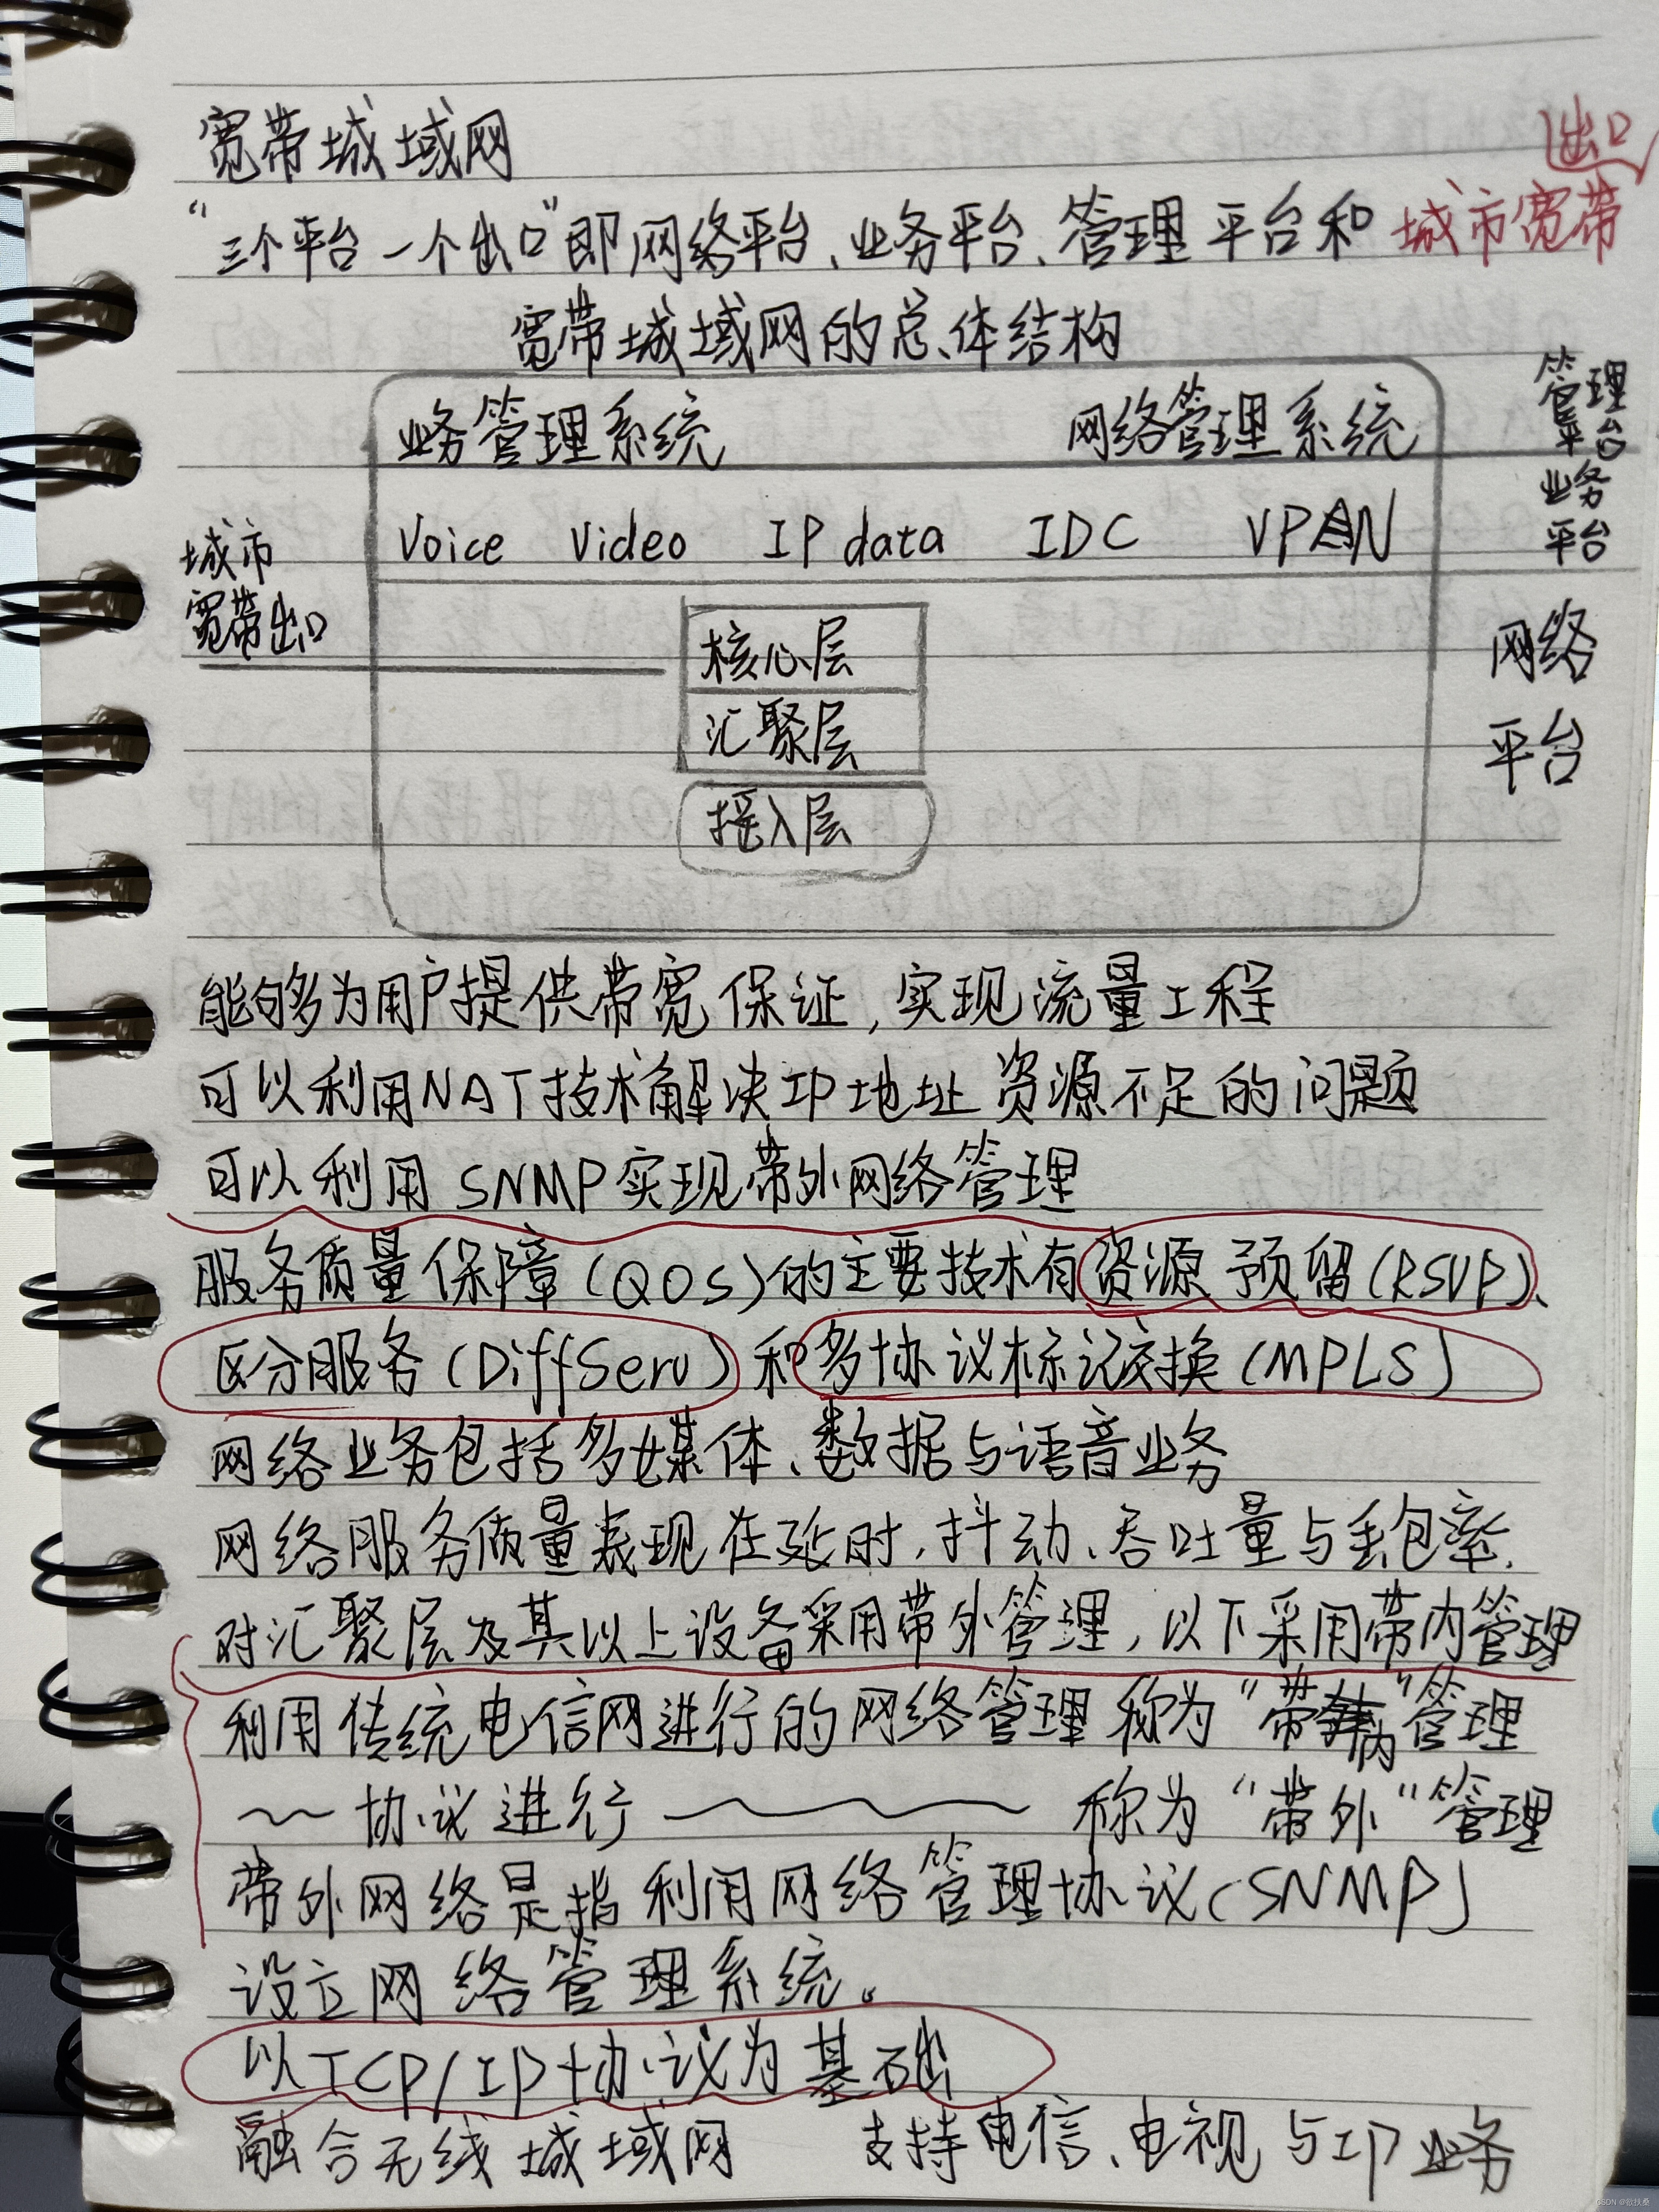 宽带城域网
出口
“三个平台一个出口”即网络平台、业务平台、管理平台和城市宽带
宽带城域网的总体结构
业务管理系统 网络管理系统
管理平台
Voice Video IP data IDC VPN
业务平台
城市
宽带出口
核心层
汇聚层
接入层
网络
平台
能够为用户提供带宽保证,实现流量工程
可以利用NAT技术解决IP地址资源不足的问题
可以利用SNMP实现带外网络管理
服务质量保障(QOS)的主要技术有资源预留(RSVP)、
区分服务(DiffServ)和多协议标记交换(MPLS)
网络业务包括多媒体、数据与语音业务
网络服务质量表现在延时,抖动、吞吐量与丢包率.
对汇聚层及其以上设备采用带外管理,以下采用带内管理
利用传统电信网进行的网络管理称为“带内”管理
~~协议进行~~~称为“带外”管理
带外网络是指利用网络管理协议(SNMP)
设立网络管理系统。
以TCP/IP协议为基础
融合无线城域网 支持电信、电视与IP业务
CSDN @欲扶桑